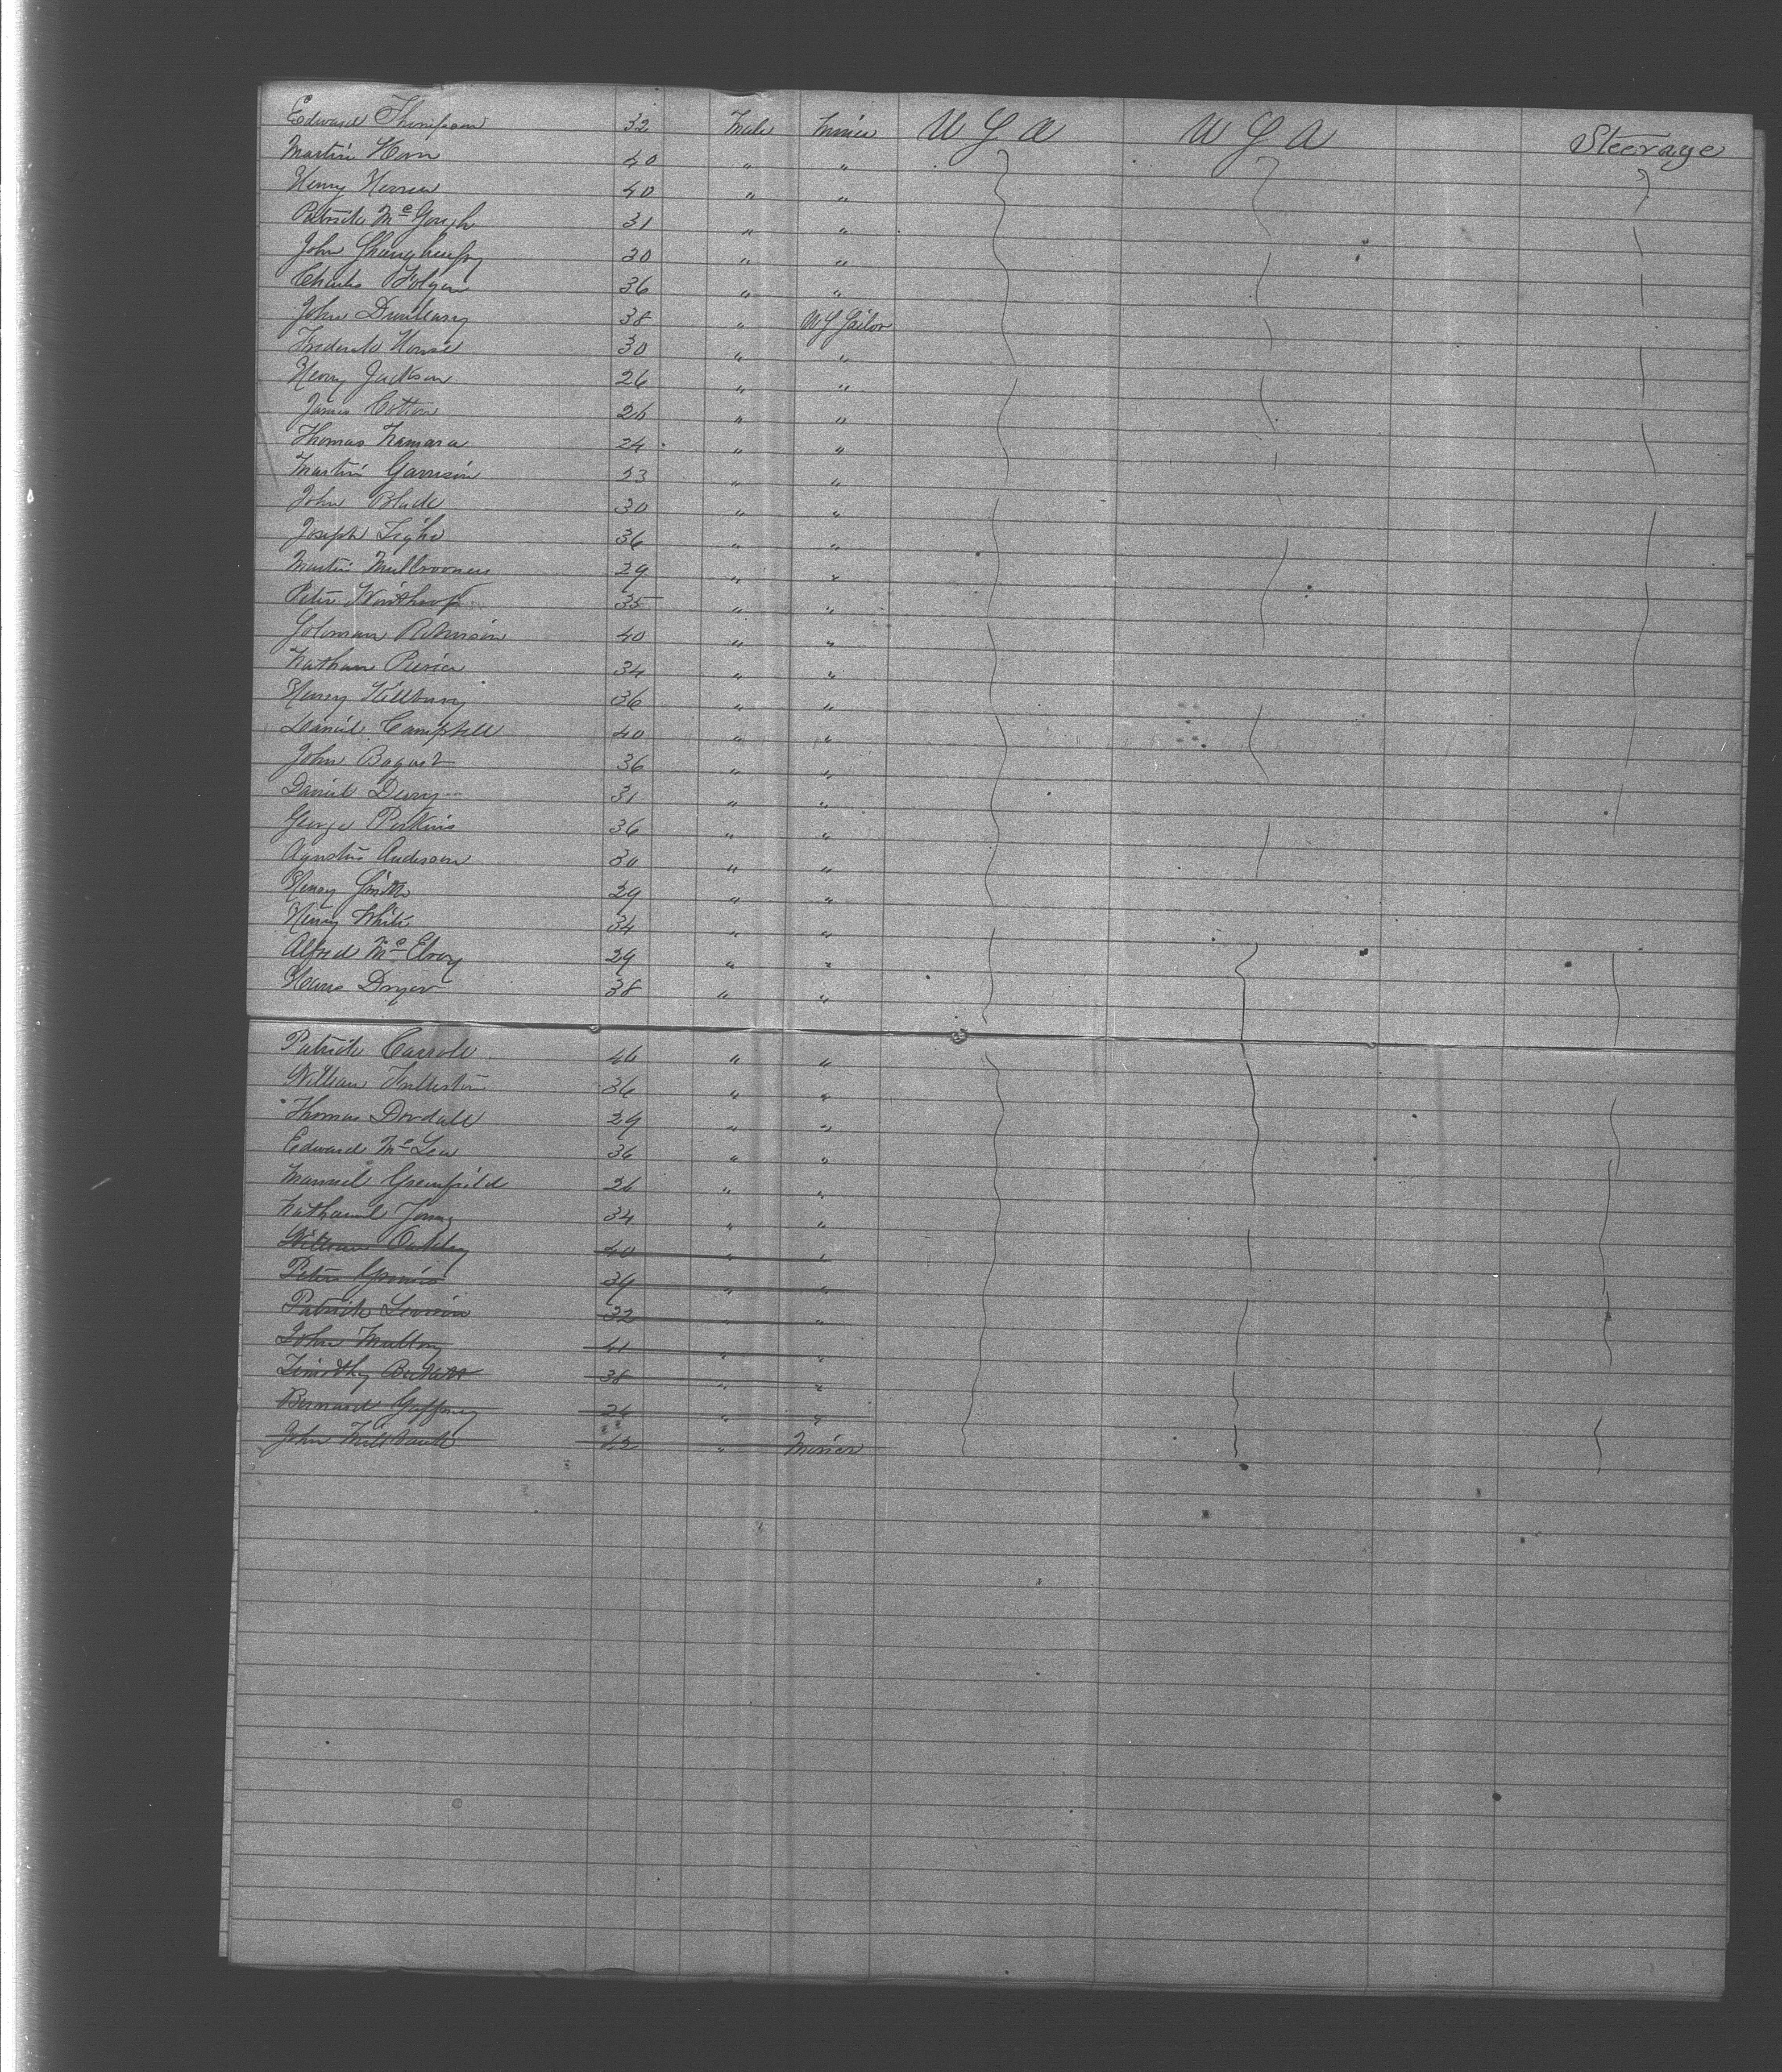 Edward Thompson 32 Male Miner U S A U S A Steerage
Martin Horn 40 " "
Henry 40 " "
Patrick Mc Gough 31 " "
John 30 " "
Charles Holgen 36 " "
John Dunleavy 38 " U S Sailor
Frederick House 30 " "
Henry Jackson 26 " "
James Cotton 26 " "
Thomas Namara 24 " "
Martin Garrison 23 " "
John Blade 30 " "
Joseph Tighe 36 " "
Martin Mulbrooney 29 " "
Peter Winthrop 35 " "
Soloman Robinson 40 " "
Nathan Pierce 34 " "
Henry Killbury 36 " "
Daniel Campbell 40 " "
John Baguet 36 " "
Daniel Dury 31 " "
George Perkins 36 " "
Agustus Anderson 30 " "
Henry Smith 29 " "
Henry White 34 " "
Alfred Mc Elroy 29 " "
Hans Dryer 38 " "
Patrick Carroll 46 " "
William Fullerton 36 " "
Thomas Dovdall 29 " "
Edward Mc Lew 36 " "
Manuel Greenfield 26 " "
Nathaniel Young 34 " "
William Oakley 40 " "
Peter 34 " "
Patrick 32 " "
John Mulloy 41 " "
Timothy 38 " "
Bernard Gaffney 26 " "
John Millbank 42 " Miner